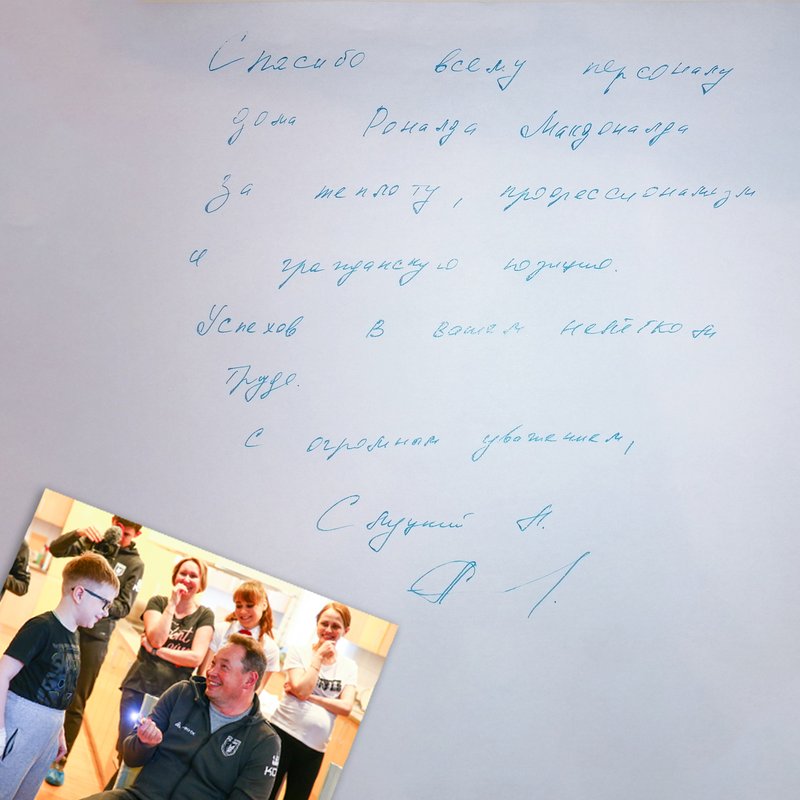 Спасибо всему персоналу
дома Роналда Макдоналда
За теплоту, профессионализм
и гражданскую позицию.
Успехов в вашем нелегком
труде.
С огромным уважением,
Слуцкий